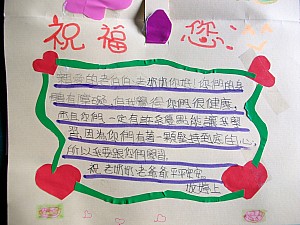 祝福您
親愛的老伯伯、老奶奶你好!你們的身
體有障礙,但我覺得你們很健康,
而且你們一定有許多優點能讓我學
習,因為你們有著一顆堅持到底的心,
所以我要跟你們學習。
祝 老奶奶老爺爺平平安安
敬上